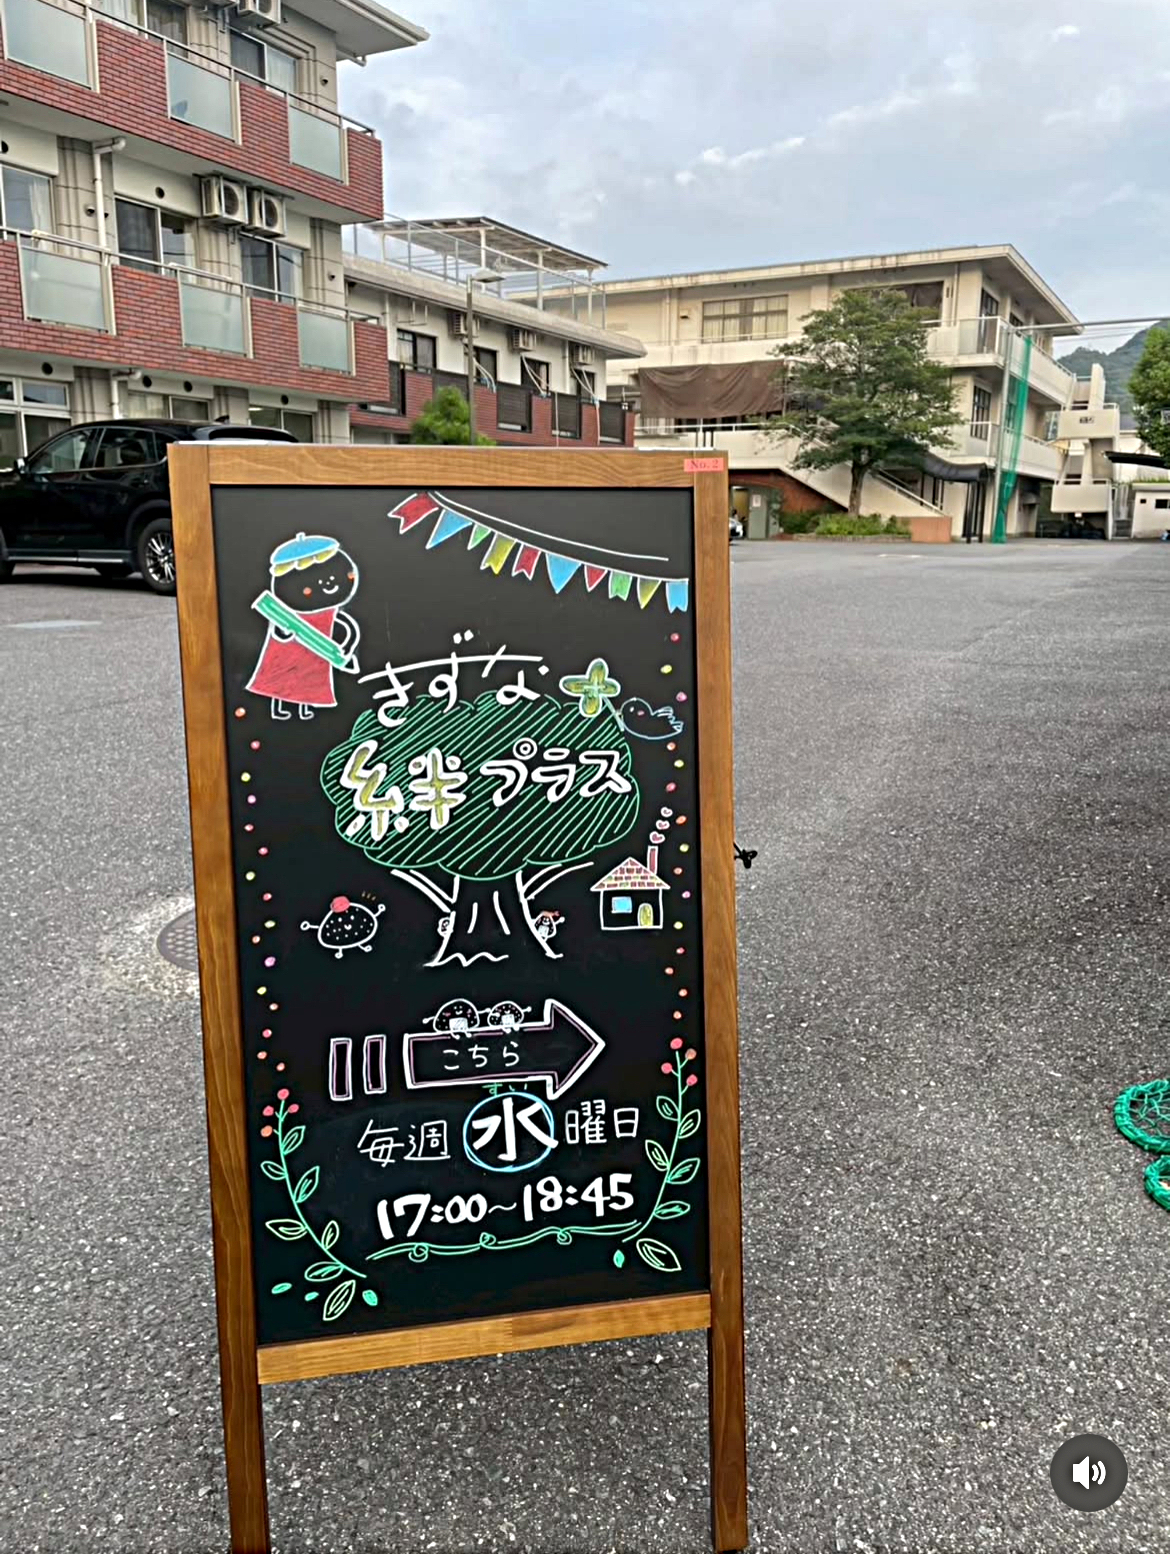 No.2
きずな
絆プラス
こちら
すい
毎週水曜日
17:00~18:45